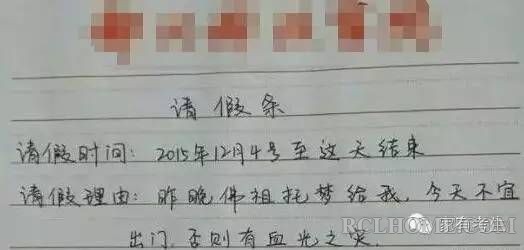 请假条
请假时间：2015年12月4号至这天结束
请假理由：昨晚佛祖托梦给我，今天不宜
出门，否则有血光之灾.
家有考生